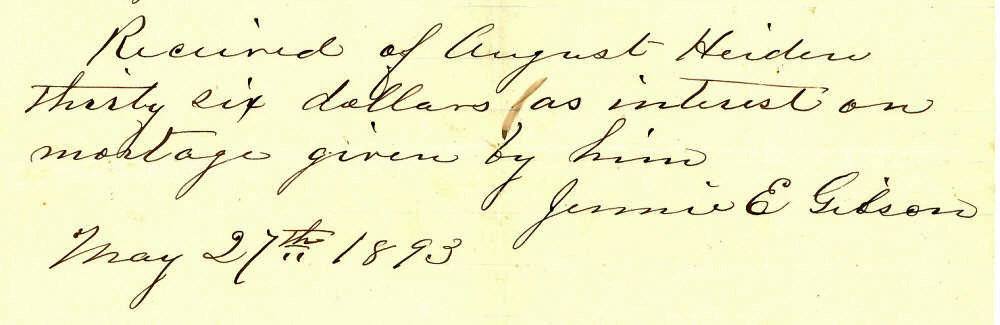 Received of August Heiden
thirty six dollars as interest on
mortage given by him
Jennie E Gibson
May 27th 1893